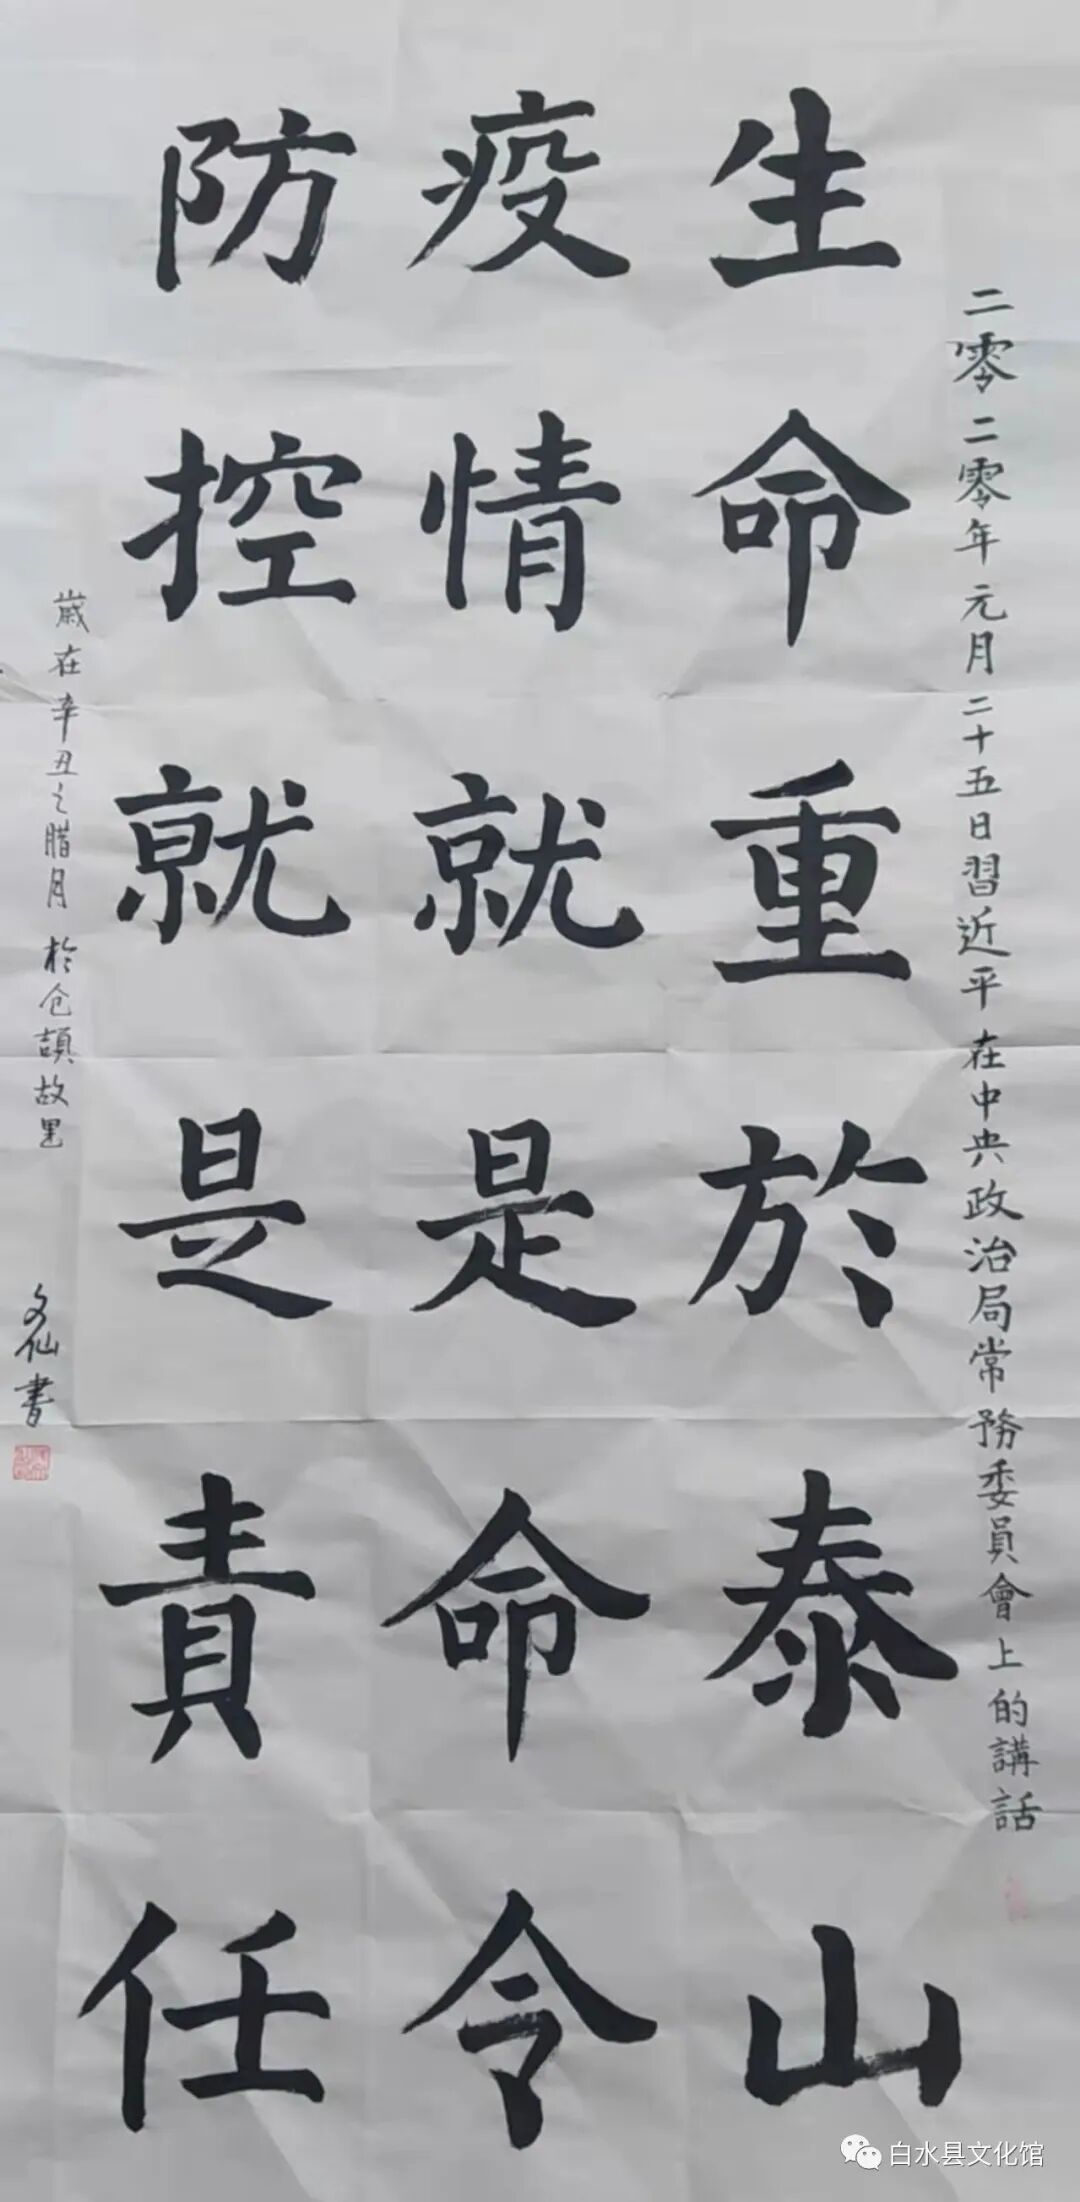 生命重於泰山
疫情就是命令
防控就是責任
二零二零年元月二十五日習近平在中央政治局常務委員會上的講話
歲在辛丑之腊月於仓頡故里
文仙書
白水县文化馆